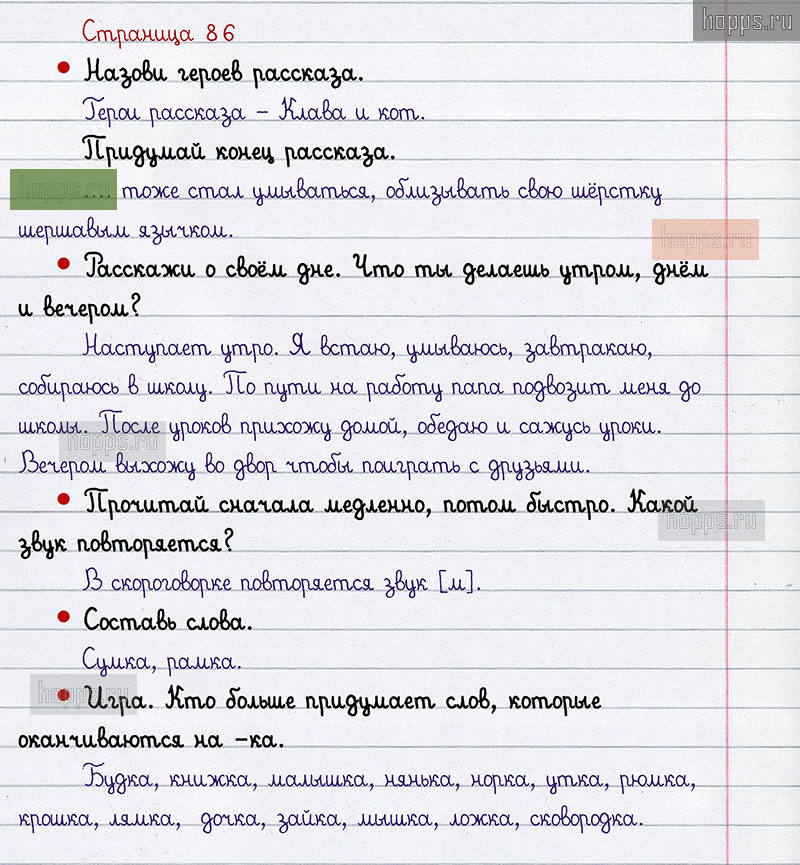 hopps.ru
Страница 86
• Назови героев рассказа.
Герои рассказа – Клава и кот.
Придумай конец рассказа.
hopps.ru .... тоже стал умываться, облизывать свою шёрстку
шершавым язычком.
hopps.ru
• Расскажи о своём дне. Что ты делаешь утром, днём
и вечером?
Наступает утро. Я встаю, умываюсь, завтракаю,
собираюсь в школу. По пути на работу папа подвозит меня до
школы. После уроков прихожу домой, обедаю и сажусь уроки.
hopps.ru
Вечером выхожу во двор чтобы поиграть с друзьями.
• Прочитай сначала медленно, потом быстро. Какой
hopps.ru
звук повторяется?
В скороговорке повторяется звук [м].
• Составь слова.
Сумка, рамка.
hopps.ru
• Игра. Кто больше придумает слов, которые
оканчиваются на –ка.
Будка, книжка, малышка, нянька, норка, утка, рюмка,
крошка, лямка, дочка, зайка, мышка, ложка, сковородка.